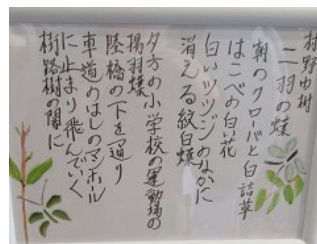 村野由樹
二羽の蝶
朝のクローバと白詰草
はこべの白い花
白いツツジのなかに
消える紋白蝶
夕方の小学校の運動場の
揚羽蝶
陸橋の下を通り
車道のはしのマンホール
に止まり飛んでいく
樹路樹の闇に